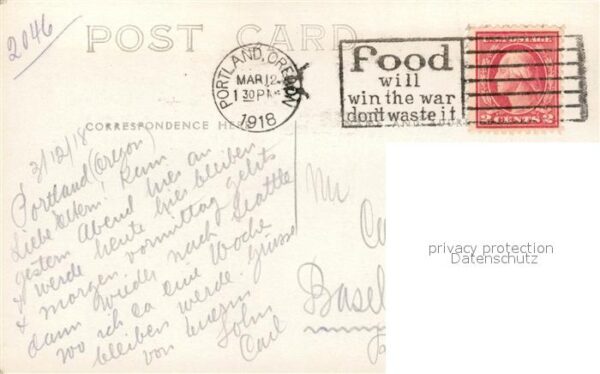 2046
POST CARD
PORTLAND, OREGON
MAR 12
1 30 PM
1918
Food
will
win the war
don't waste it
U.S. POSTAGE
2 CENTS 2
CORRESPONDENCE HERE
3/12/18
Portland (Oregon)
Liebe Eltern! Kam
gestern Abend hier an
& werde heute hier bleiben
& morgen vormittag gehts
dann wieder nach Seattle
wo ich ca eine Woche
bleiben werde. Grüsse
von Euerm
Sohn
Carl
Mr
Ca
Basel
privacy protection
Datenschutz